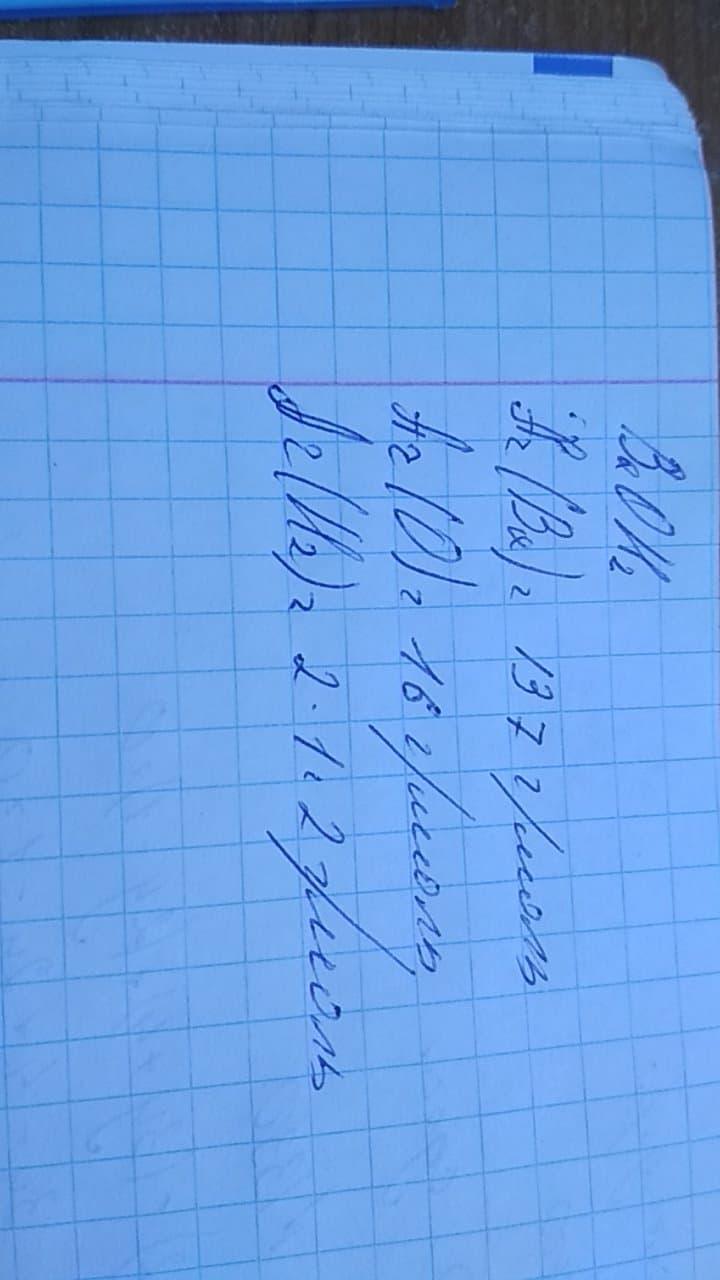 BaOH₂
Ar(Ba) = 137 г/моль
Ar(O) = 16 г/моль
Ar(H₂) = 2·1 = 2 г/моль